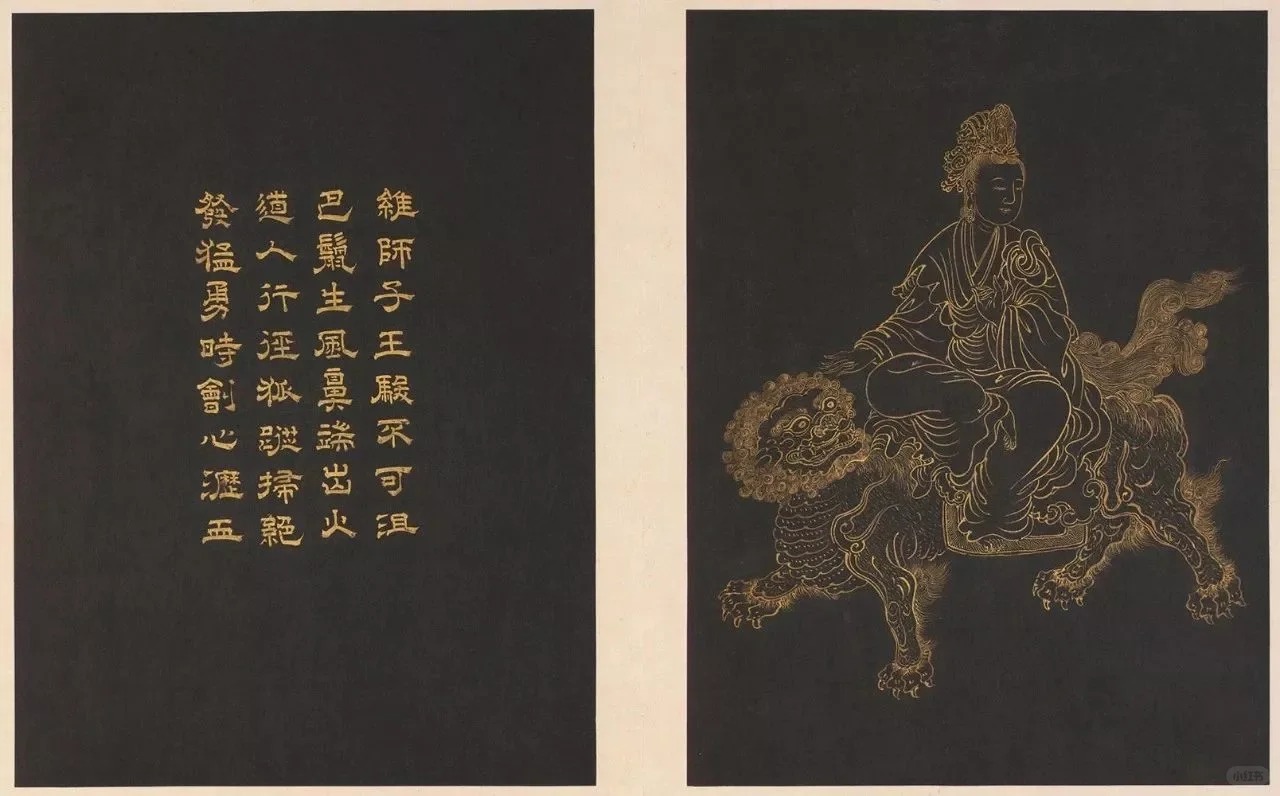 維師子王駿不可沮
巴鬣生風鼻端出火
道人行徑狐蹤掃絕
發猛勇時劊心瀝血
小红书